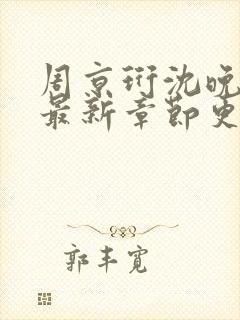 周京衍沈晚
最新章节更
郭丰宽